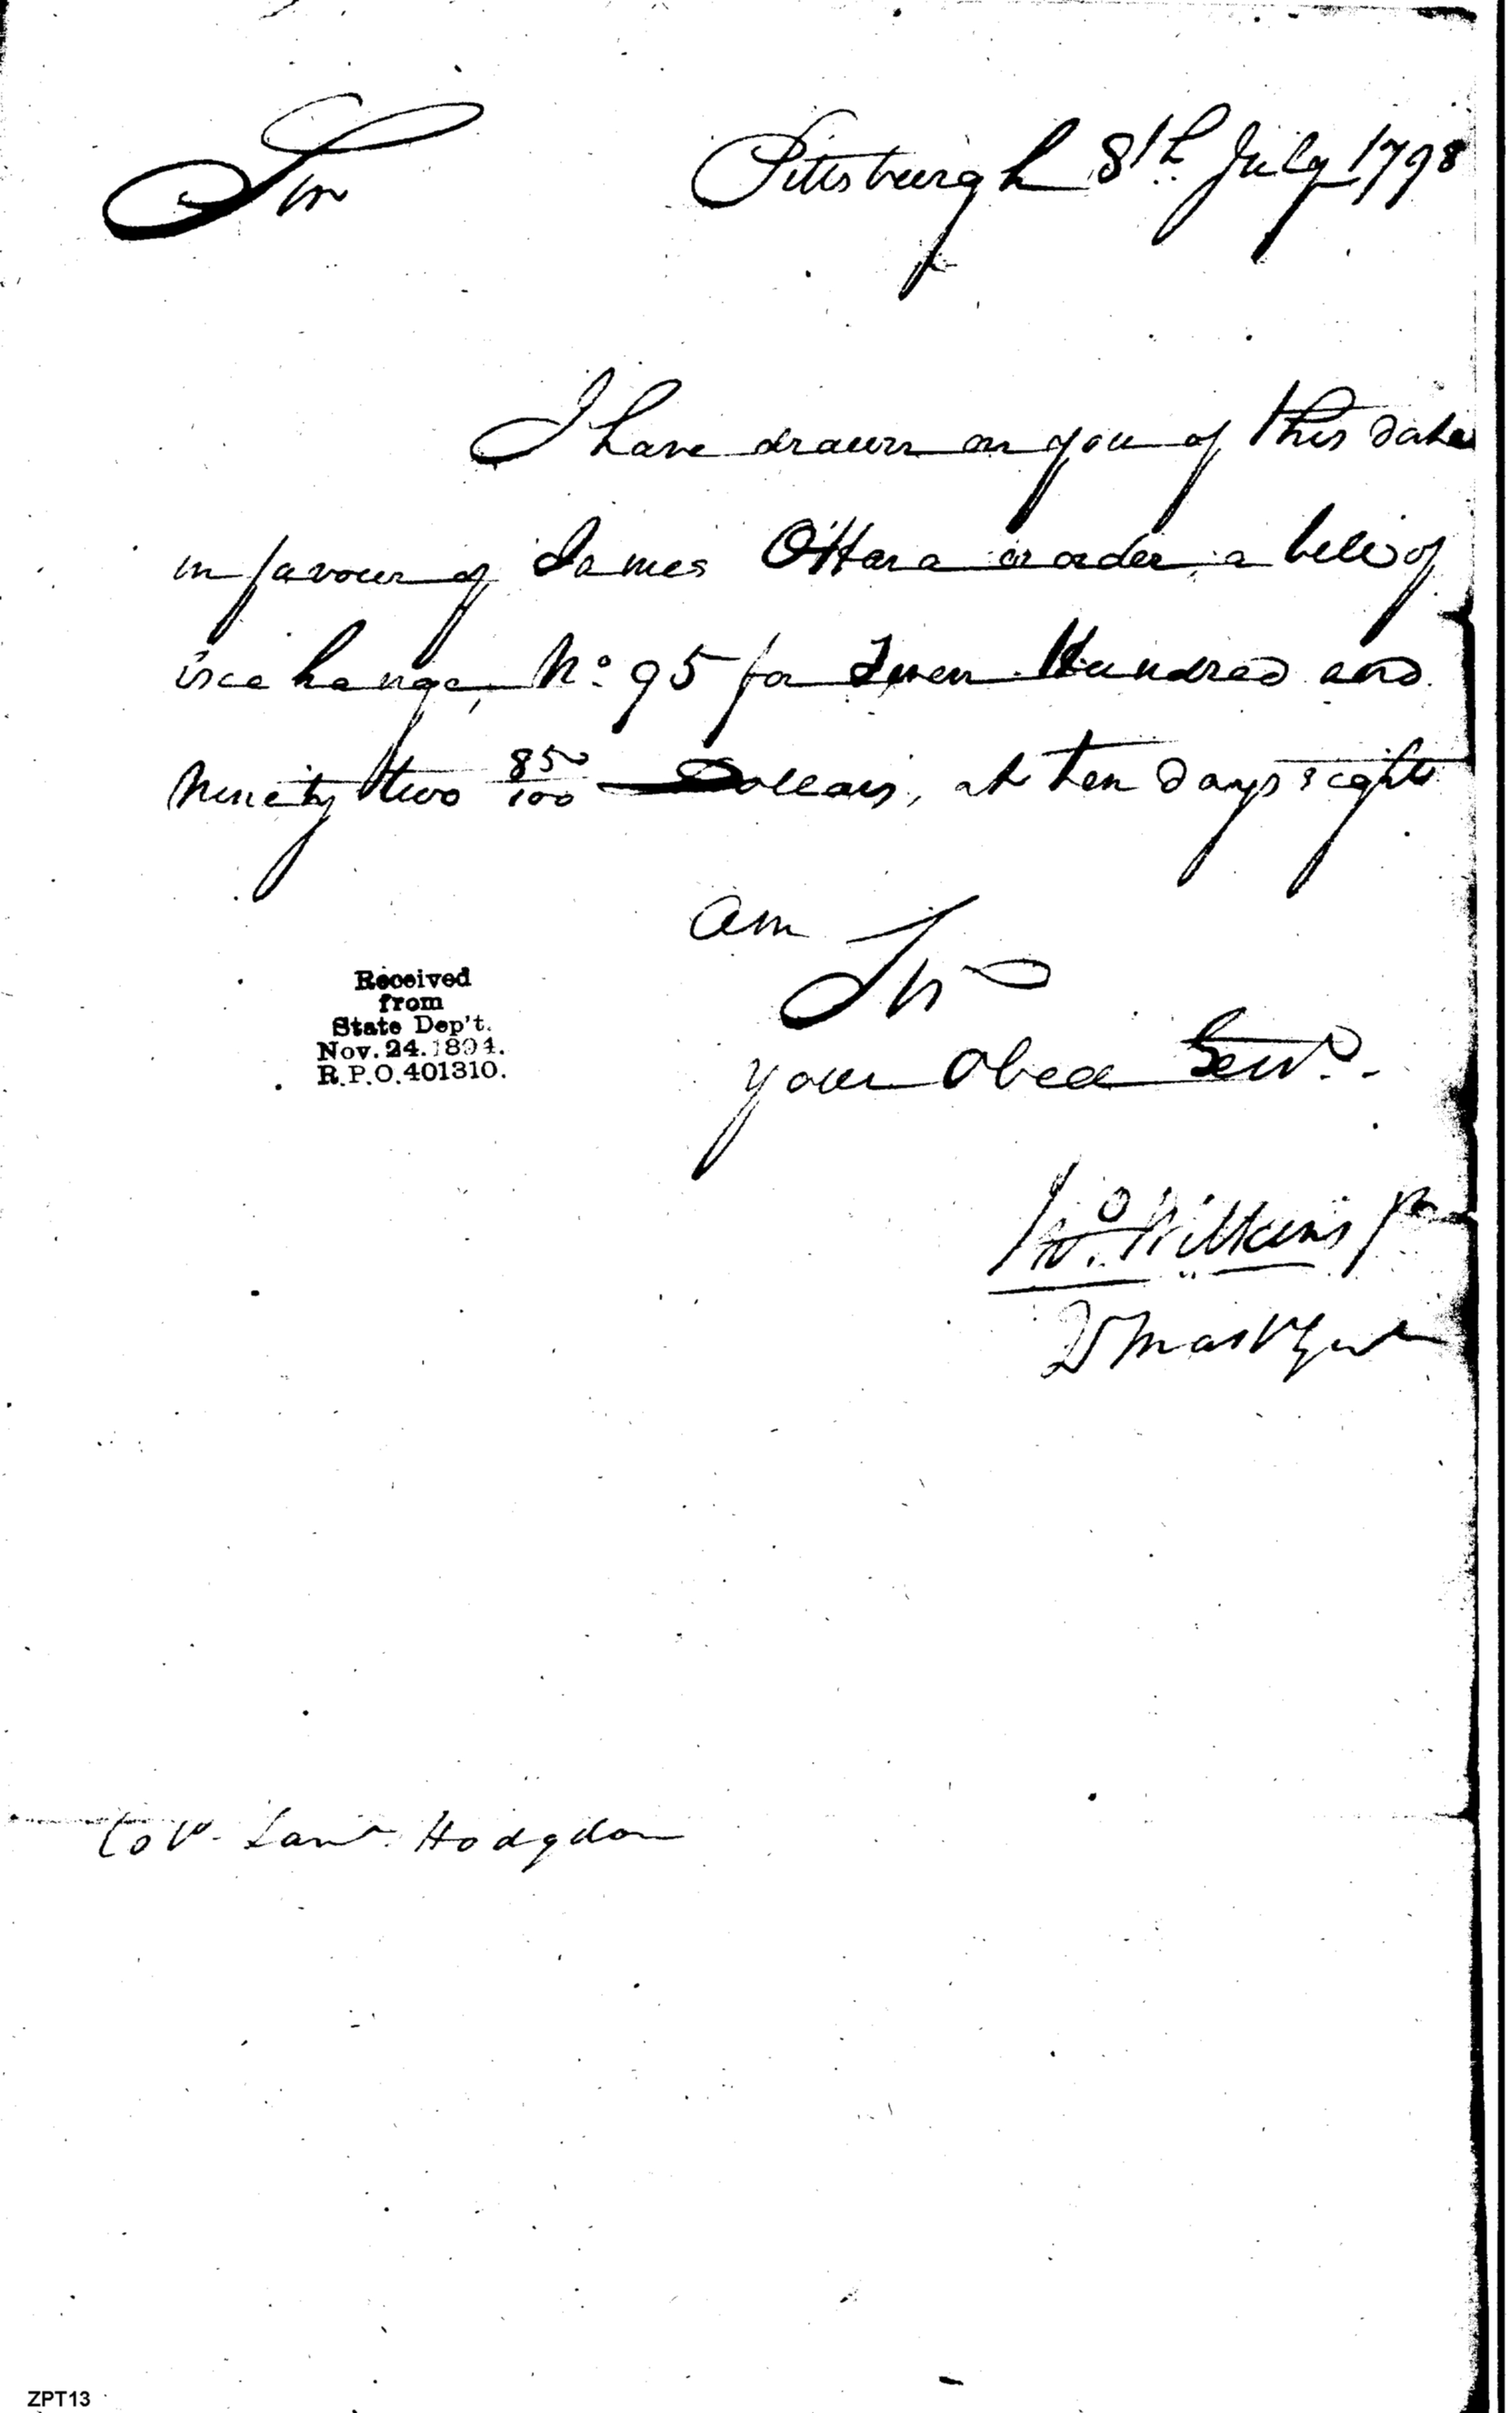 Sir Pittsburgh 8th July 1798
I have drawn on you of this date
in favour of James O'Hara or order, a bill of
exchange, No. 95 for Seven Hundred and
Ninety two 85/100 Dollars, at ten days sight
am
Sir
your Obed Servt.
Jno. Wilkins Jr
QrMas Genl
Received
from
State Dep't.
Nov. 24. 1894.
R.P.O. 401310.
Col. Saml. Hodgdon
ZPT13